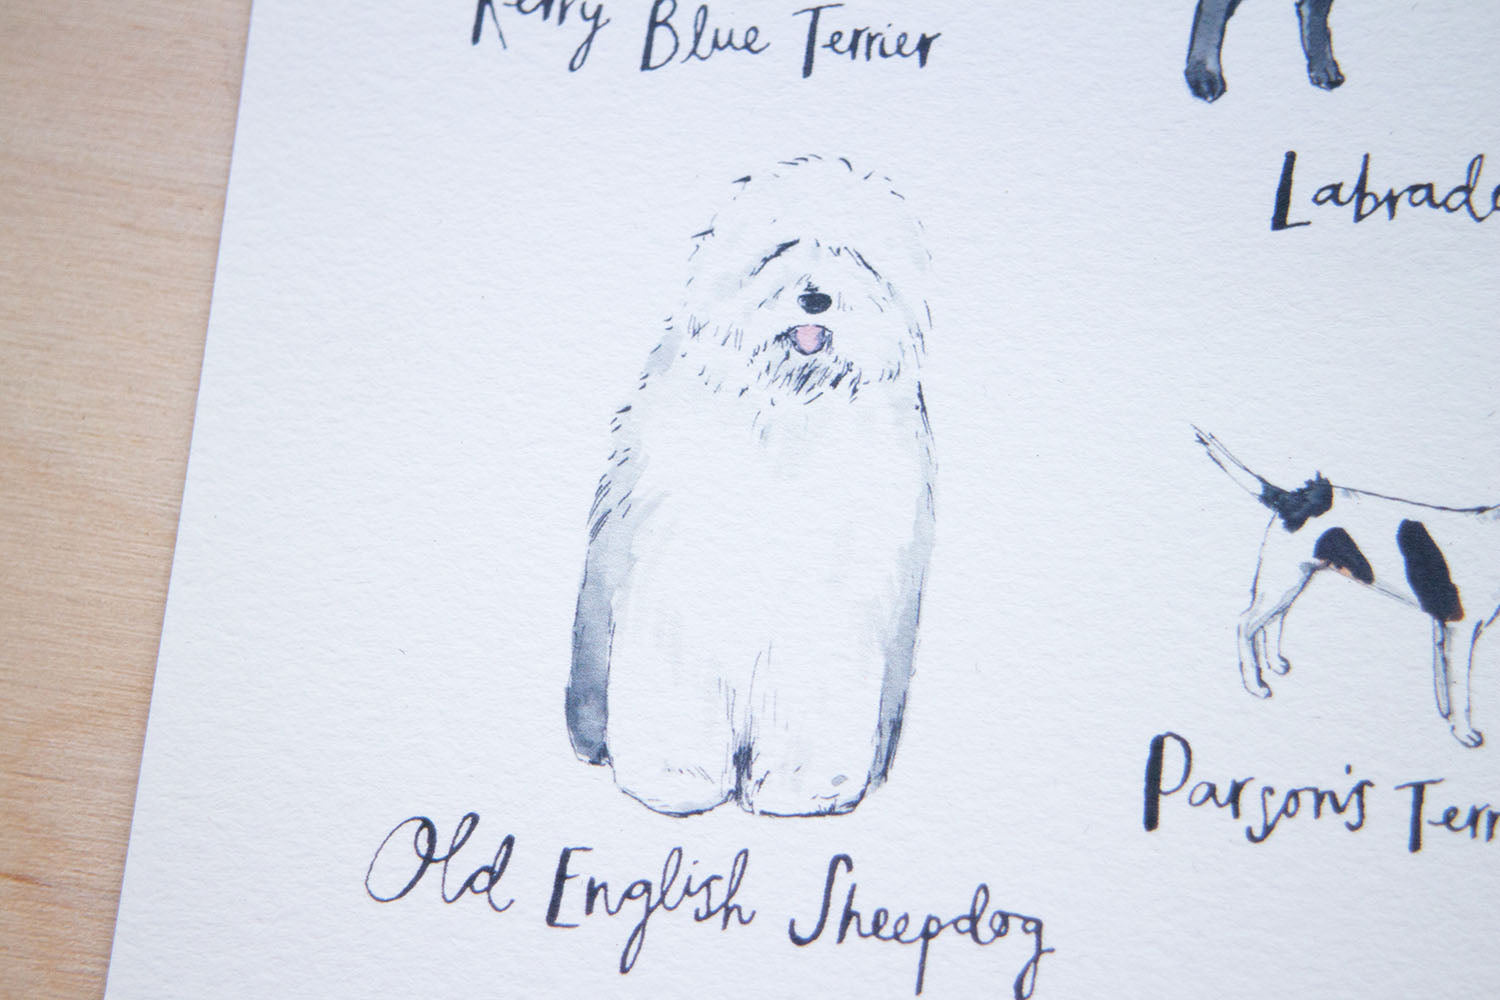 Kerry Blue Terrier
Labrado
Old English Sheepdog
Parson's Terr